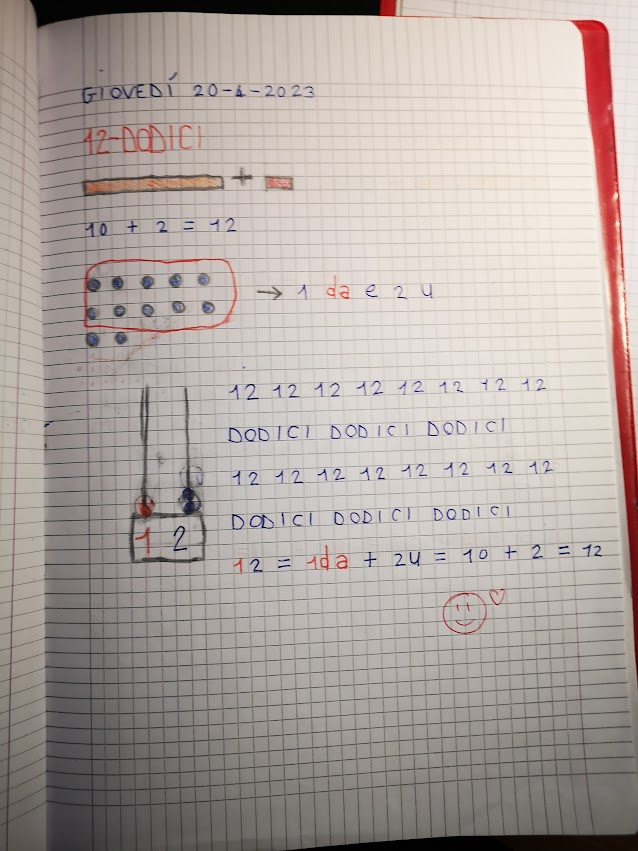 GIOVEDÍ 20-4-2023
12-DODICI
+
10 + 2 = 12
→ 1 da e 2 u
12 12 12 12 12 12 12 12
DODICI DODICI DODICI
12 12 12 12 12 12 12 12
DODICI DODICI DODICI
1 2
12 = 1da + 2u = 10 + 2 = 12